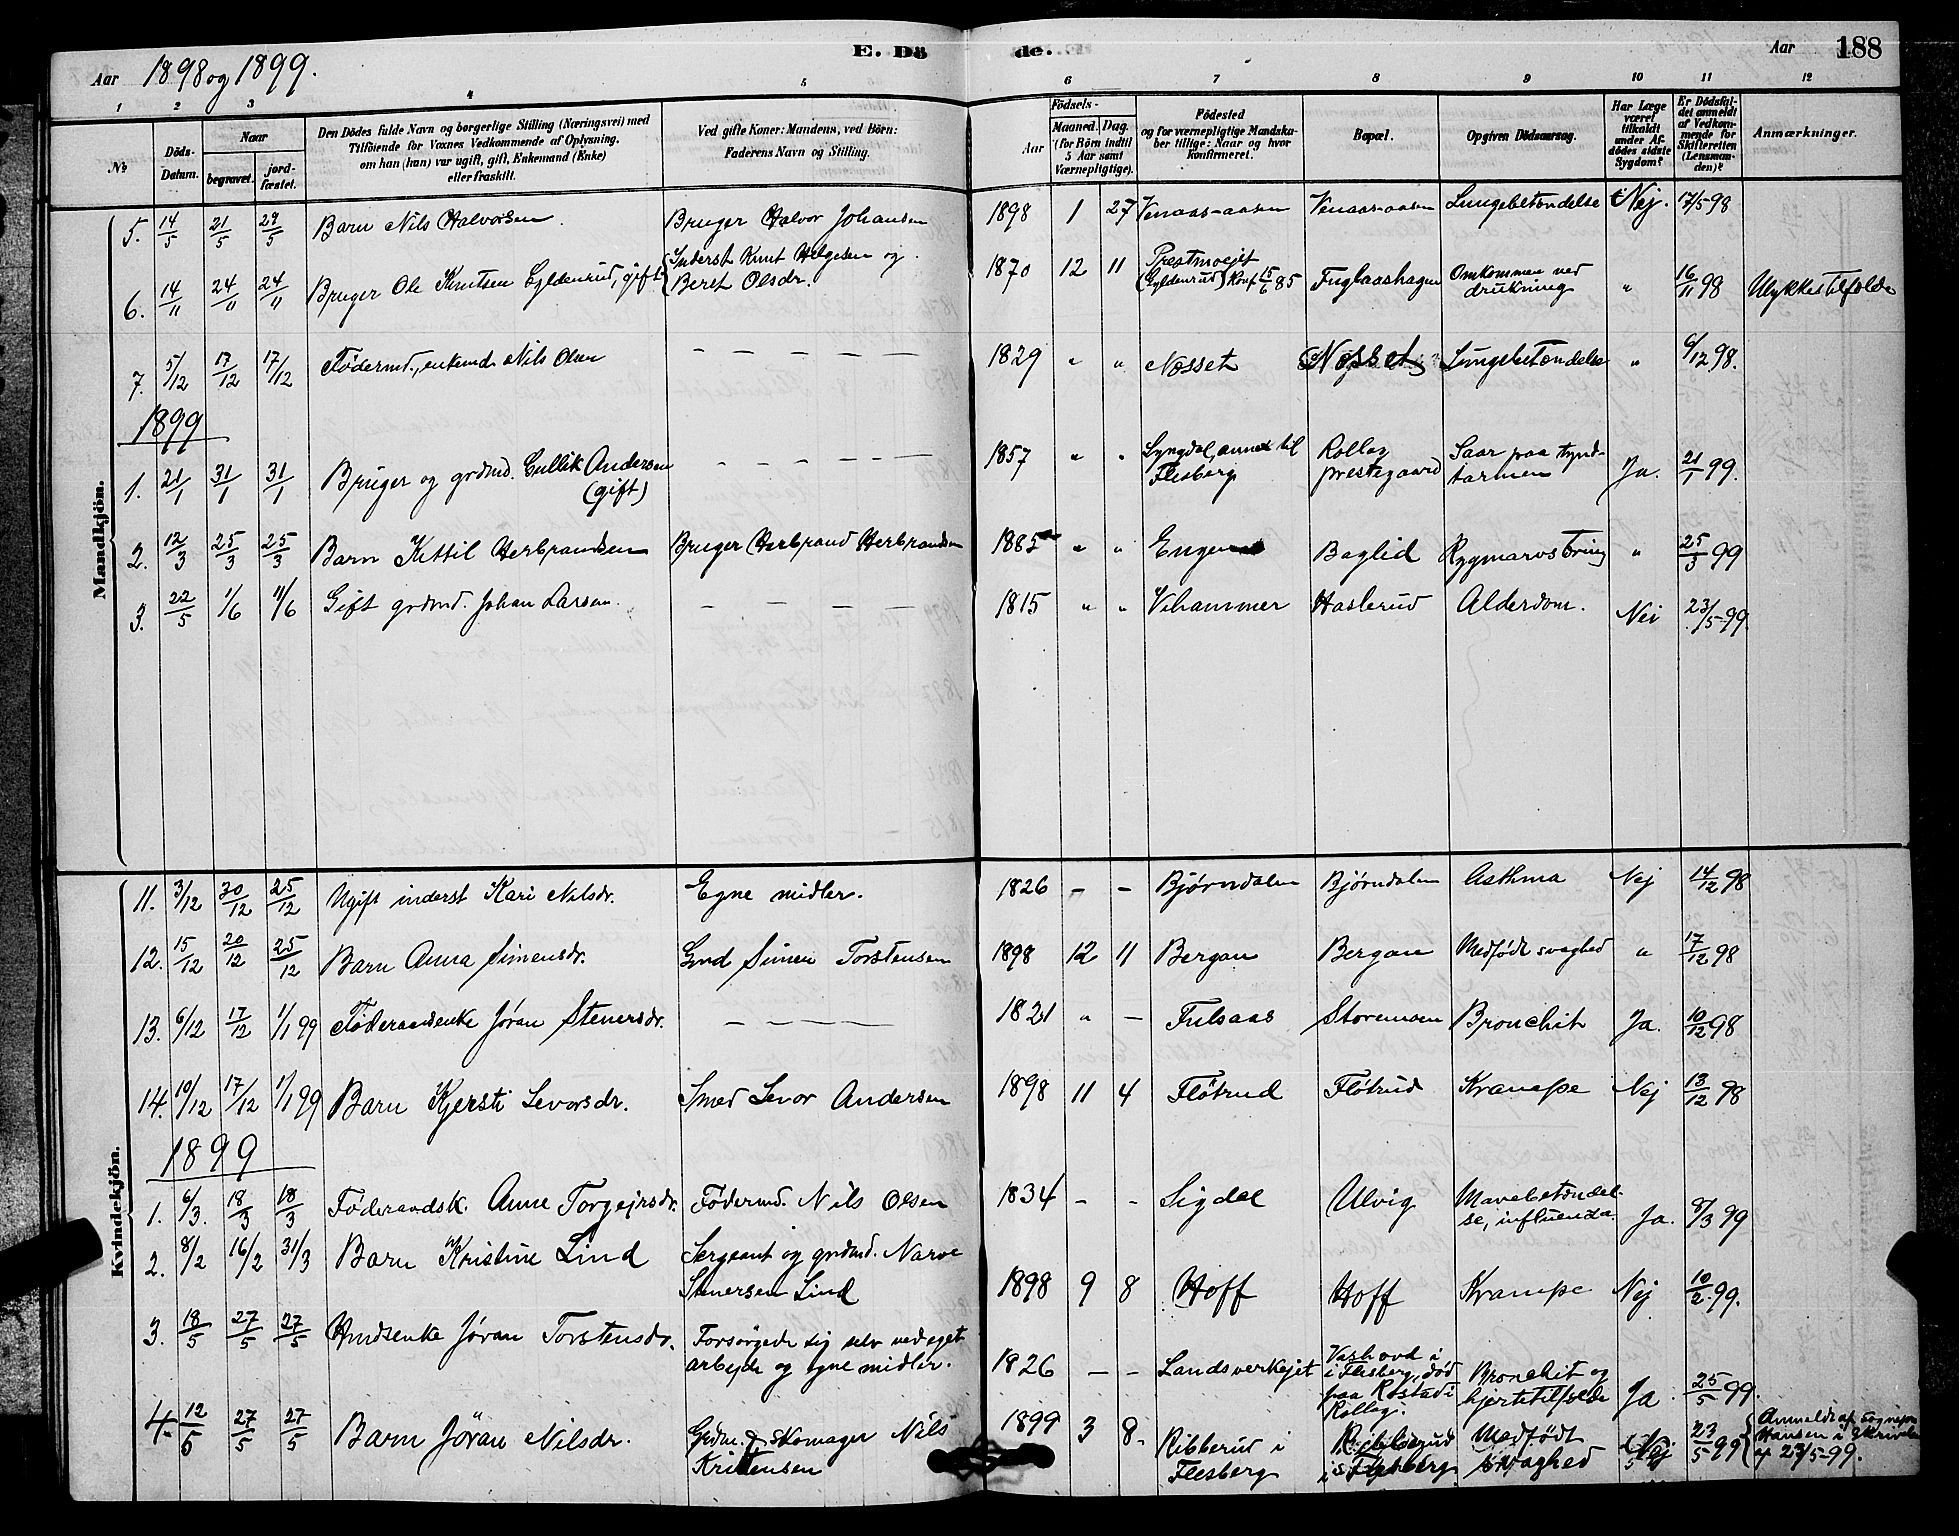 Aar 1898 og 1899. E. Dö de. Aar 188
1 2 3 4 5 6 7 8 9 10 11 12
No Döds-Datum. Naar begravet. jord-fæstet. Den Dödes fulde Navn og borgerlige Stilling (Næringsvei) med Tilföiende for Voxnes Vedkommende af Oplysning, om han (hun) var ugift, gift, Enkemand (Enke) eller fraskilt. Ved gifte Koner: Mandens, ved Börn: Faderens Navn og Stilling. Födsels- Aar Maaned. Dag. (for Börn indtil 5 Aar samt Værnepligtige). Födested og for værnepligtige Mandskaber tillige: Naar og hvor konfirmeret. Bopæl. Opgiven Dödsaarsag. Har Læge været tilkaldt under Afdödes sidste Sygdom? Er Dödsfaldet anmeldt af Vedkommende for Skifteretten (Lensmanden)? Anmærkninger.
Mandkjön.
5. 14/5 21/5 29/5 Barn Nils Halvorsen. Bruger Halvor Johansen 1898 1 27 Venaas-aasen Venaas-aasen Lungebetændelse Nej. 17/5 98
6. 14/11 24/11 24/11 Bruger Ole Knutsen Gyldenrud, gift Inderst Knut Helgesen og Beret Olsdr. 1870 12 11 Prestmoejet (Gyldenrud) Konf 15/6 85 Fuglaashagen Omkommen ved drukning " 16/11 98 Ulykkestilfælde
7. 5/12 17/12 17/12 Födermd., enkemd. Nils Olsen — — — — — 1829 " " Næsset Næsset Lungebetændelse " 6/12 98.
1899
1. 21/1 31/1 31/1 Bruger og grdmd. Gullik Andersen (gift) — — — — — 1857 " " Lyngdal, annex til Flesberg Rollag prestegaard Saar paa tynd-tarmen Ja. 21/1 99.
2. 12/3 25/3 25/3 Barn Kittil Herbrandsen Bruger Herbrand Herbrandsen 1885 " " Engen Baglid Rygmarvstæring " 25/3 99
3. 22/5 1/6 11/6 Gift grdmd. Johan Larsen. — — — — 1815 " " Vehammer Haslerud Alderdom. Nei 23/5-99.
Kvindekjön.
11. 3/12 30/12 25/12 Ugift inderst Kari Nilsdr. Egne midler. 1826 — — Bjørndalen Bjørndalen Asthma Nej 14/12 98
12. 15/12 20/12 25/12 Barn Anna Simensdr. Grd Simen Torstensen 1898 12 11 Bergan Bergan Medfödt svaghed " 17/12 98
13. 6/12 17/12 1/1 99 Föderaadsenke Jøran Stenersdr. — — — — 1821 " — Fulsaas Storemoen Bronchit Ja. 10/12 98
14. 10/12 17/12 1/1 99 Barn Kjersti Levorsdr. Smed Levor Andersen 1898 11 4 Flötrud Flötrud Krampe Nej 13/12 98
1899
1. 6/3. 18/3 18/3 Föderaadsk. Anne Torgejrsdr. Födermd. Nils Olsen 1834 — — Sigdal Ulvig Mavebetændel-se, influenda. Ja. 8/3 99
2. 8/2 16/2 31/3 Barn Kristine Lind Sergeant og grdmd. Narve Stenersen Lind 1898 9 8 Hoff Hoff Krampe Nej 10/2. 99.
3. 18/5 27/5 27/5 Husdsenke Jøran Torstensdr. Forsörgede sig selv ved eget arbejde og egne midler. 1826 — — Landsverkejet Vashovd i Flesberg, död paa Rostad i Rollag. Bronchit og hjertetilfælde Ja 25/5 99.
4. 12/5 27/5 27/5 Barn Jöran Nilsdr. Grdm. & skomager Nils Kristensen 1899 3 8. Ribberud i Flesberg Ribberud i Flesberg Medfödt svaghed Nej 23/5 99 Anmeldt af Hansen i 23/5-99.